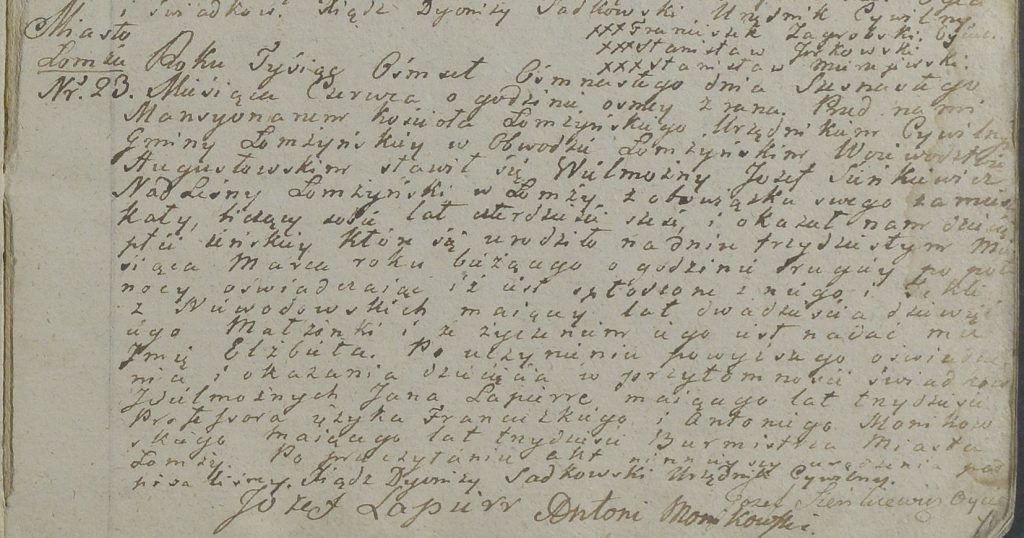 i Swiadków. Xiądz Dyonizy Sadkowski Urzędnik Cywilny.
Miasto
xxx Franciszek Zagrobski
xxx Stanisław
xxx Stanisław
Łomża Roku Tysiąc Ośmset Ośmnastego dnia Szesnastego
Nr. 23. Miesiąca Czerwca o godzinie osmey z rana. Przed nami
Mansyonarzem Kościoła Łomżyńskiego Urzędnikiem Cywilny
Gminy Łomżyńskiey w Obwodzie Łomżyńskim Woiewodztwie
Augustowskim stawił się Wielmożny Jozef Sienkiewicz
Nadleśny Łomżyński w Łomży z obowiązku swego zamiesz
kały, liczący sobie lat czterdzieści sześć i okazał nam dziecię
płci żeńskiey które się urodziło na dniu trzydziestym Mie
siąca Marca roku bieżącego o godzinie drugiey po poł
nocy oświadczaiąc iż iest spłodzone z niego i Tekli
z Niewodowskich maiącey lat dwadzieścia dziewięć
iego Małżonki i że życzeniem iego iest nadać mu
Imię Elżbieta. Po uczynieniu powyższego oświadcze
nia i okazania dziecięcia w przytomności świadków
Wielmożnych Jana Lapierre maiącego lat trzydzieści
Professora ięzyka Francuzkiego i Antoniego Monikow
skiego maiącego lat trzydzieści Burmistrza Miasta
Łomży. Po przeczytaniu akt ninnieyszy urodzenia pod
pisaliśmy. Xiądz Dyonizy Sadkowski Urzędnik Cywilny.
Józef Sienkiewicz Oyciec
Jozef Lapierr Antoni Monikowski.